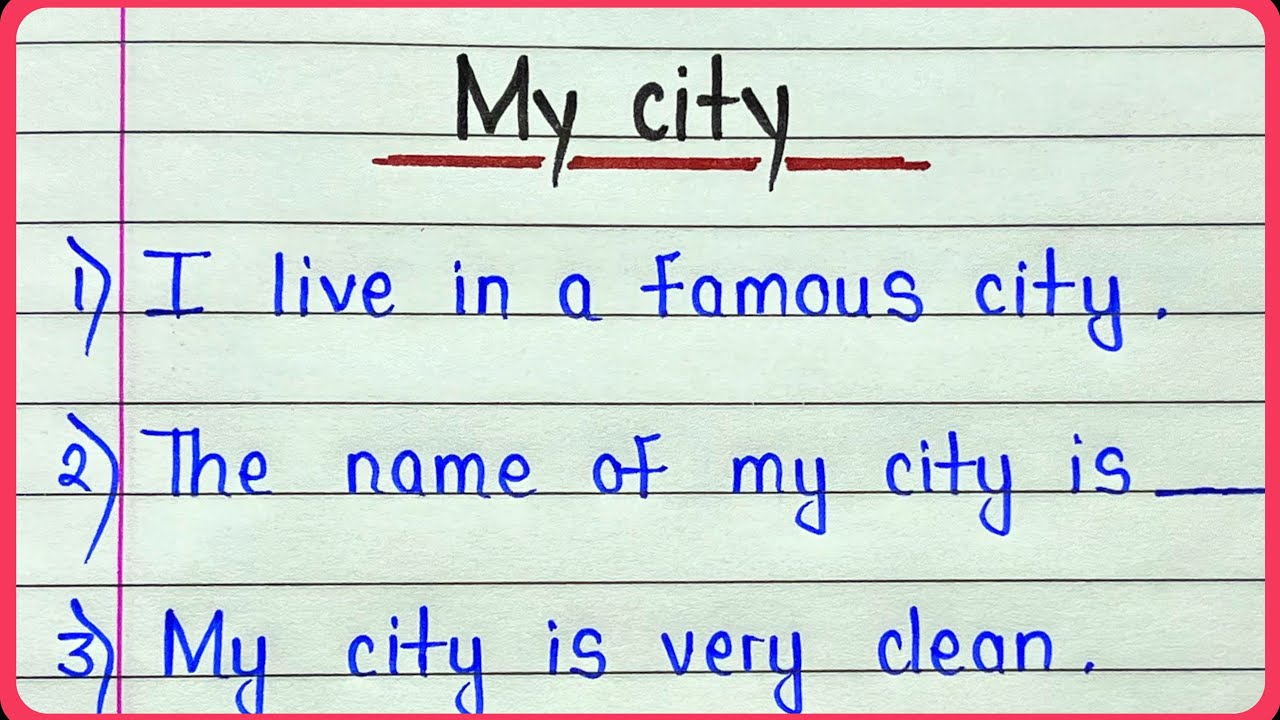 My city
1) I live in a famous city.
2) The name of my city is ___
3) My city is very clean.